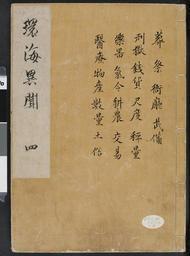 葬 祭 衙廳 武備
刑獄 錢貨 尺度 秤量
樂器 耕農 交易
醫療 物産 數量 土俗
環海異聞 四